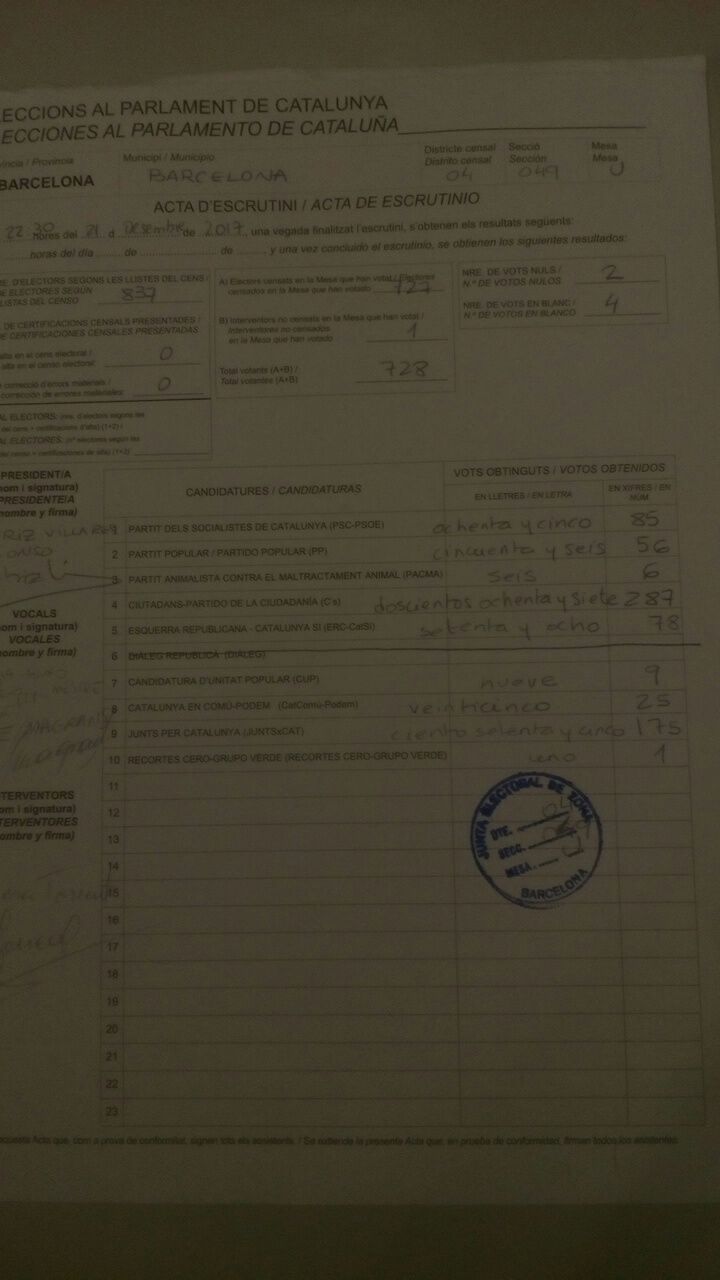 LECCIONS AL PARLAMENT DE CATALUNYA
LECCIONES AL PARLAMENTO DE CATALUÑA
víncia / Provincia
BARCELONA
Municipi / Municipio
BARCELONA
Districte censal
Distrito censal
04
Secció
Sección
049
Mesa
Mesa
U
ACTA D'ESCRUTINI / ACTA DE ESCRUTINIO
22:30 hores del 21 d Desembre de 2017, una vegada finalitzat l'escrutini, s'obtenen els resultats següents:
horas del día ............ de ............ de ........, y una vez concluido el escrutinio, se obtienen los siguientes resultados:
E. D'ELECTORS SEGONS LES LLISTES DEL CENS /
DE ELECTORES SEGÚN
LISTAS DEL CENSO
837
. DE CERTIFICACIONS CENSALS PRESENTADES /
DE CERTIFICACIONES CENSALES PRESENTADAS
alta en el cens electoral /
alta en el censo electoral:
0
correcció d'errors materials /
corrección de errores materiales:
0
AL ELECTORS: (nre. d'electors segons les
del cens + certificacions d'alta) (1+2) /
AL ELECTORES: (nº electores según las
del censo + certificaciones de alta) (1+2)
A) Electors censats en la Mesa que han votat / Electores
censados en la Mesa que han votado
727
B) Interventors no censats en la Mesa que han votat /
Interventores no censados
en la Mesa que han votado
1
Total votants (A+B) /
Total votantes (A+B)
728
NRE. DE VOTS NULS /
N.º DE VOTOS NULOS
2
NRE. DE VOTS EN BLANC /
N.º DE VOTOS EN BLANCO
4
PRESIDENT/A
(nom i signatura)
PRESIDENTE/A
(nombre y firma)
VOCALS
(nom i signatura)
VOCALES
(nombre y firma)
INTERVENTORS
(nom i signatura)
INTERVENTORES
(nombre y firma)
CANDIDATURES / CANDIDATURAS
VOTS OBTINGUTS / VOTOS OBTENIDOS
EN LLETRES / EN LETRA
EN XIFRES / EN NÚM.
1 PARTIT DELS SOCIALISTES DE CATALUNYA (PSC-PSOE) ochenta y cinco 85
2 PARTIT POPULAR / PARTIDO POPULAR (PP) cincuenta y seis 56
3 PARTIT ANIMALISTA CONTRA EL MALTRACTAMENT ANIMAL (PACMA) seis 6
4 CIUTADANS-PARTIDO DE LA CIUDADANÍA (C's) doscientos ochenta y siete 287
5 ESQUERRA REPUBLICANA - CATALUNYA SÍ (ERC-CatSí) setenta y ocho 78
6 DIÀLEG REPUBLICÀ (DIÀLEG)
7 CANDIDATURA D'UNITAT POPULAR (CUP) nueve 9
8 CATALUNYA EN COMÚ-PODEM (CatComú-Podem) veinticinco 25
9 JUNTS PER CATALUNYA (JUNTSxCAT) ciento setenta y cinco 175
10 RECORTES CERO-GRUPO VERDE (RECORTES CERO-GRUPO VERDE) uno 1
11
12
13
14
15
16
17
18
19
20
21
22
23
JUNTA ELECTORAL DE ZONA
DTE. 04
SECC.
MESA.
BARCELONA
questa Acta que, com a prova de conformitat, signen tots els assistents. / Se extiende la presente Acta que, en prueba de conformidad, firman todos los asistentes.